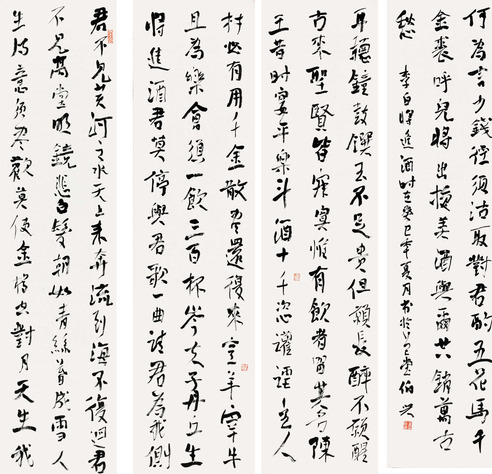 君不見黄河之水天上来奔流到海不復迴君
不見高堂明鏡悲白髮朝如青絲暮成雪人
生得意須尽歡莫使金樽空對月天生我
材必有用千金散盡還復来烹羊宰牛
且為樂會須一飲三百杯岑夫子丹丘生
將進酒君莫停與君歌一曲請君為我側
耳聽鐘鼓饌玉不足貴但願長醉不願醒
古来聖賢皆寂寞惟有飲者留其名陳
王昔時宴平樂斗酒十千恣讙謔主人
何為言少錢徑須沽取對君酌五花馬千
金裘呼兒將出換美酒與爾共銷萬古
愁 李白將進酒時在癸巳年夏月書於堂伯